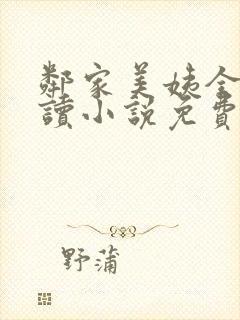 鄰家美姨全
讀小説免費
野蒲